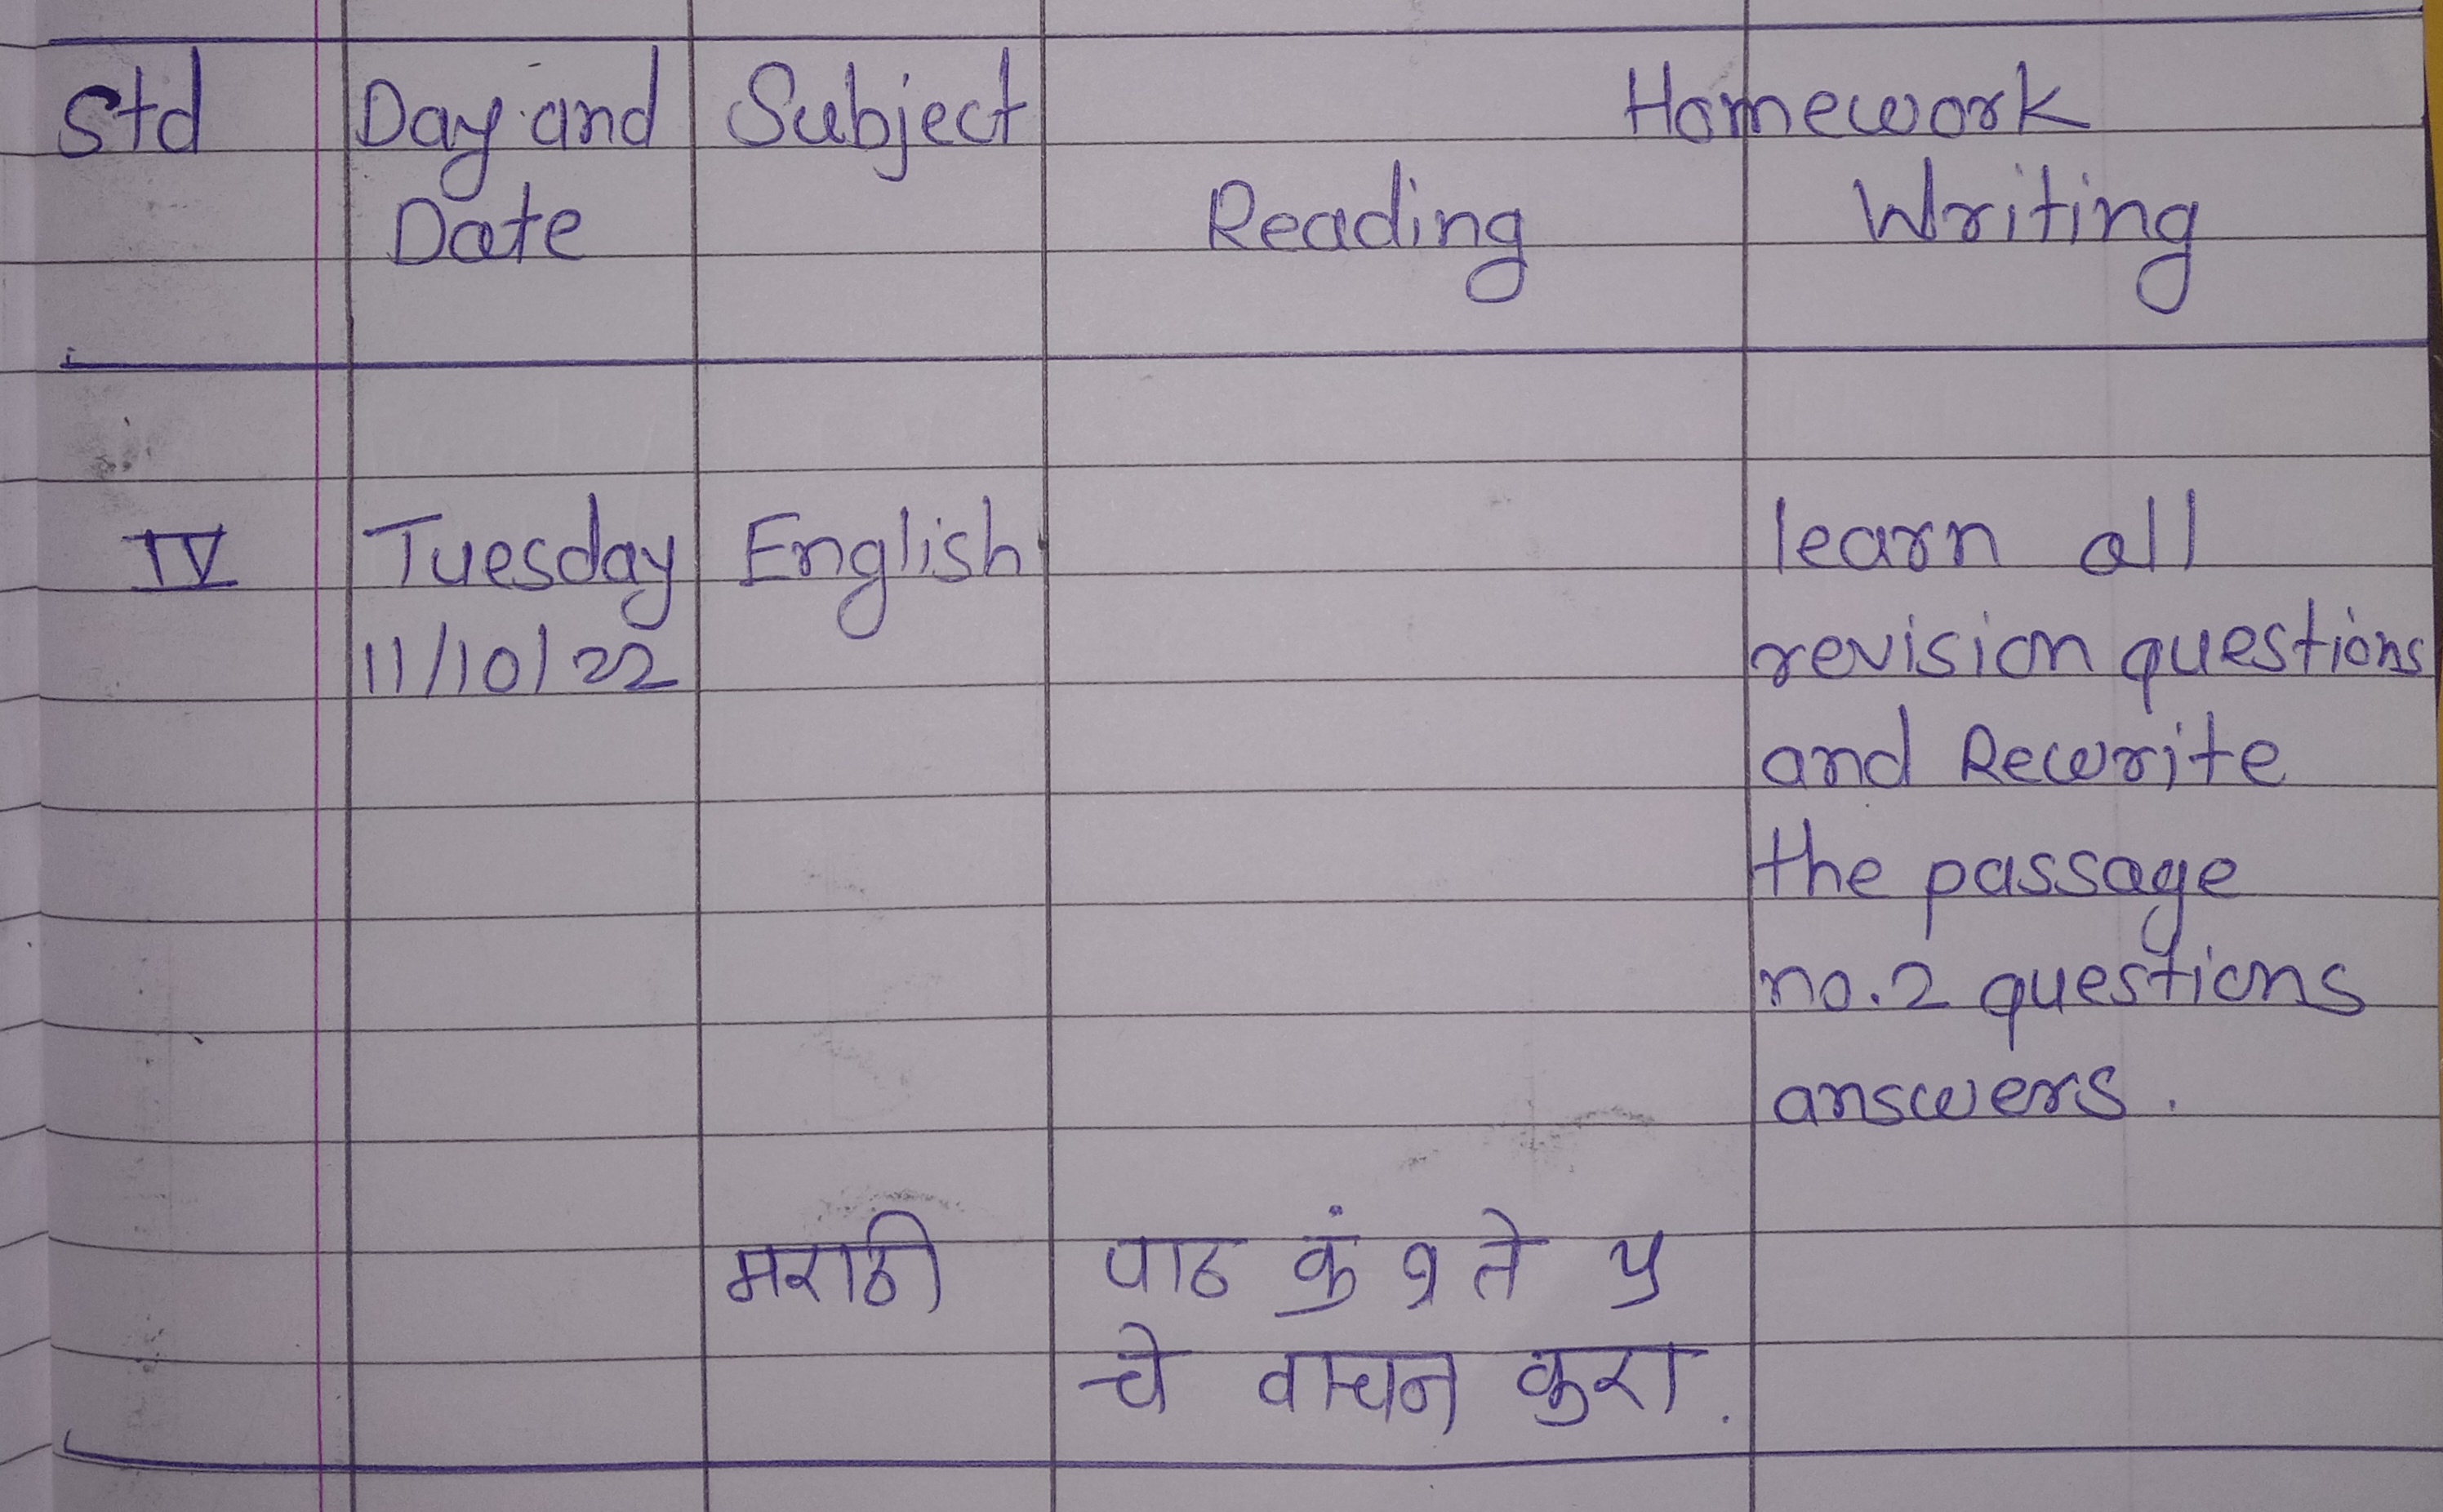 Std Day and Subject Homework
Date Reading Writing
IV Tuesday English learn all
11/10/22 revision questions
and Rewrite
the passage
no.2 questions
answers.
मराठी पाठ कं १ ते ५
चे वाचन करा.